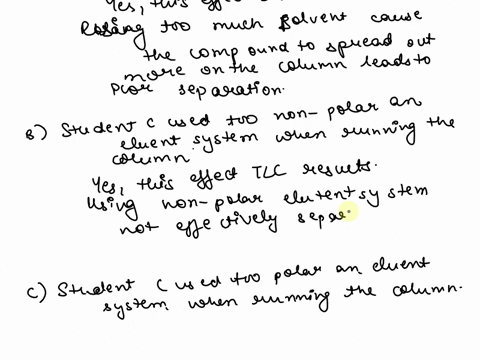 Yes, this effect
Rosing too much solvent cause
the compound to spread out
more on the column leads to
Poor separation.
B) Student C used too non-polar an
eluent system when running the
column.
Yes, this effect TLC results.
Using non-polar elutent system
not effectively separ
C) Student C used too polar an eluent
system when running the column.